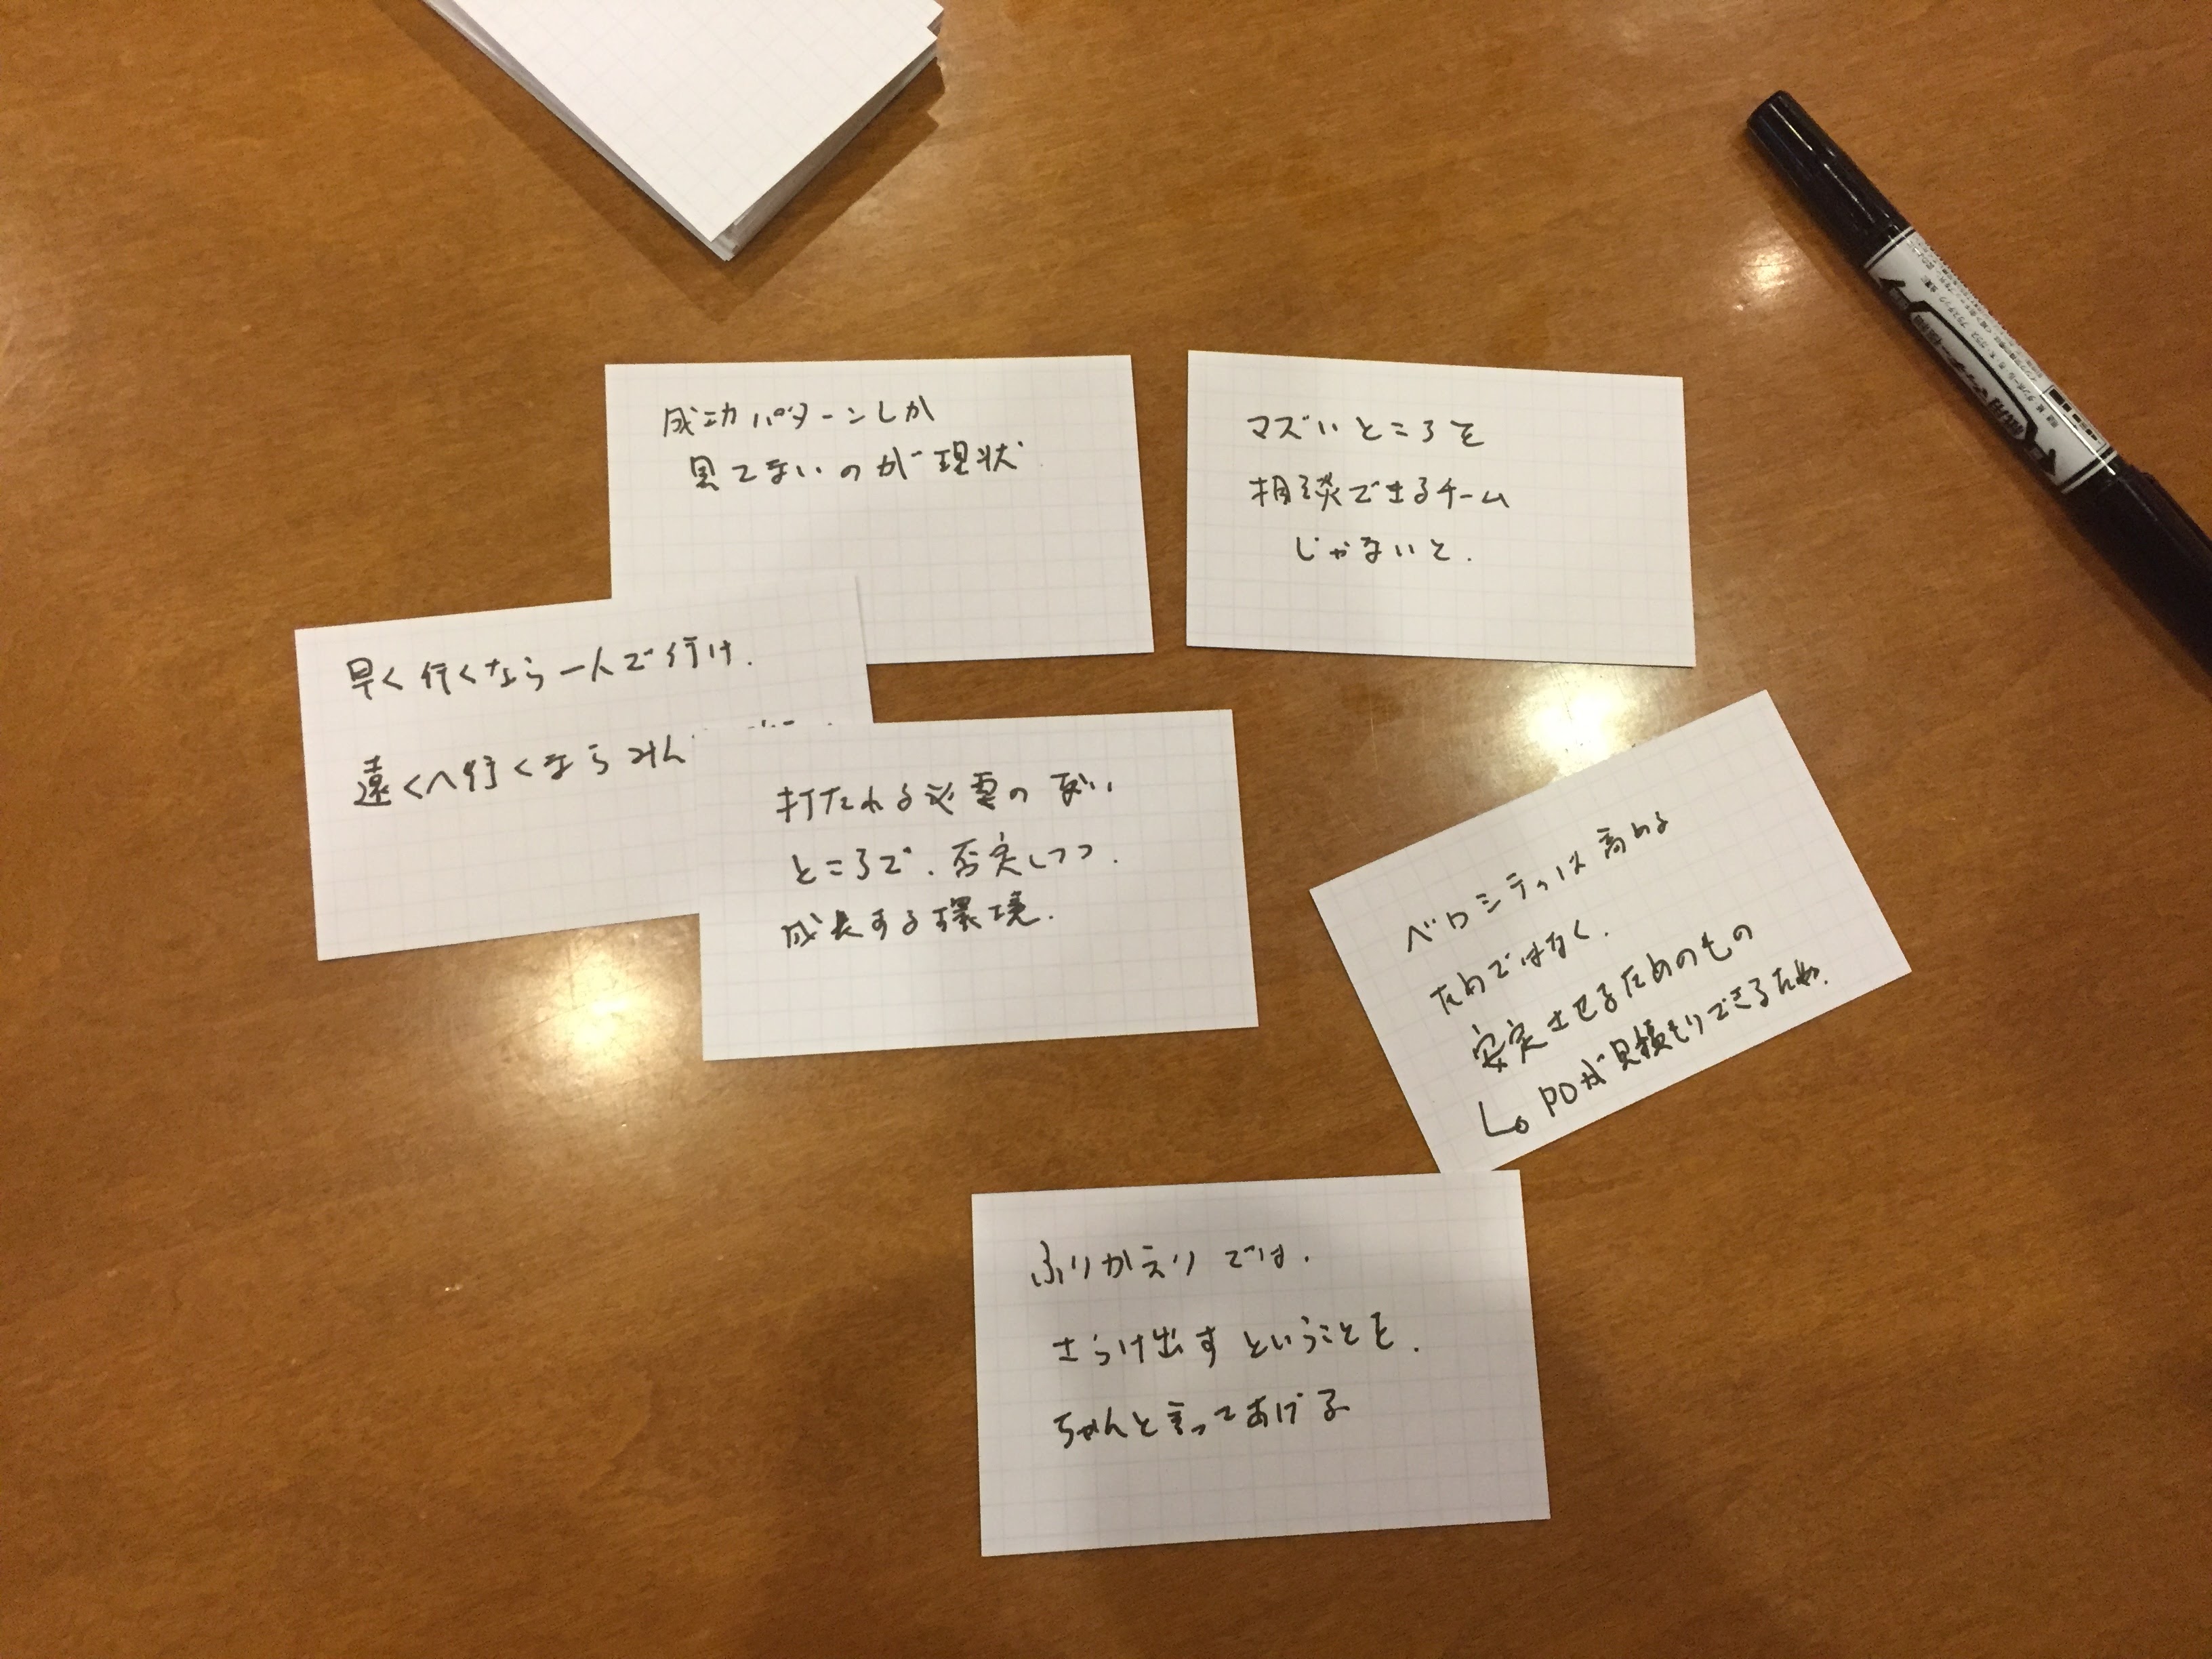 成功パターンしか
見てないのが現状
マズいところを
相談できるチーム
じゃないと.
早く行くなら一人で行け.
遠くへ行くならみん
打たれる必要の
ところで.否定しつつ.
成長する環境.
ベロシティは高める
ためではなく.
安定させるためのもの
POが見積もりできるため.
ふりかえりでは.
さらけ出すということを.
ちゃんと言ってあげる